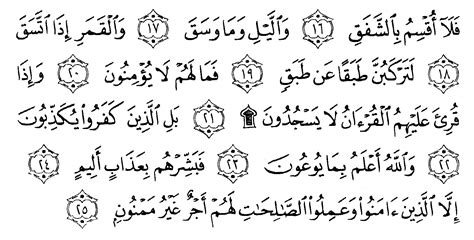 فَلَآ أُقْسِمُ بِٱلشَّفَقِ ١٦ وَٱلَّيْلِ وَمَا وَسَقَ ١٧ وَٱلْقَمَرِ إِذَا ٱتَّسَقَ
١٨ لَتَرْكَبُنَّ طَبَقًا عَن طَبَقٍ ١٩ فَمَا لَهُمْ لَا يُؤْمِنُونَ ٢٠ وَإِذَا
قُرِئَ عَلَيْهِمُ ٱلْقُرْءَانُ لَا يَسْجُدُونَ ۩ ٢١ بَلِ ٱلَّذِينَ كَفَرُوا۟ يُكَذِّبُونَ
٢٢ وَٱللَّهُ أَعْلَمُ بِمَا يُوعُونَ ٢٣ فَبَشِّرْهُم بِعَذَابٍ أَلِيمٍ ٢٤
إِلَّا ٱلَّذِينَ ءَامَنُوا۟ وَعَمِلُوا۟ ٱلصَّٰلِحَٰتِ لَهُمْ أَجْرٌ غَيْرُ مَمْنُونٍۭ ٢٥